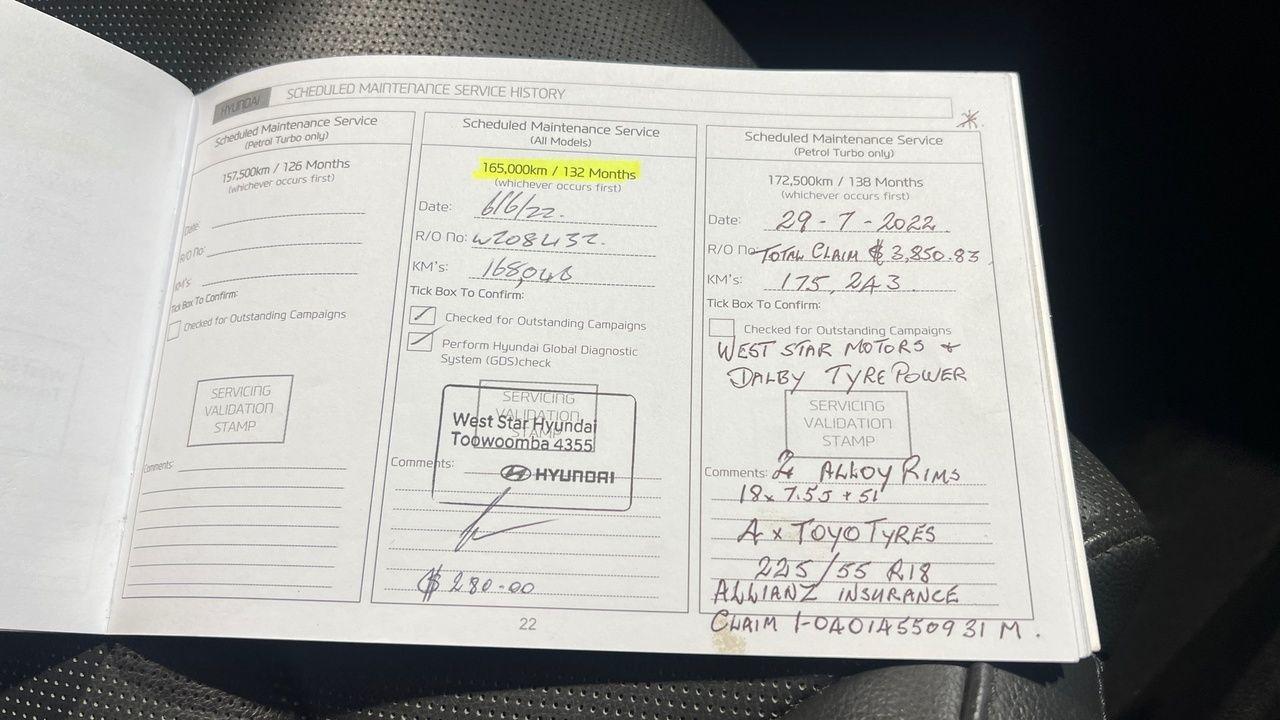 HYUNDAI SCHEDULED MAINTENANCE SERVICE HISTORY
Scheduled Maintenance Service
(Petrol Turbo only)
157,500km / 126 Months
(whichever occurs first)
Date:
R/O No:
KM's:
Tick Box To Confirm:
Checked for Outstanding Campaigns
SERVICING
VALIDATION
STAMP
Comments:
Scheduled Maintenance Service
(All Models)
165,000km / 132 Months
(whichever occurs first)
Date: 6/6/22.
R/O No: W208432.
KM's: 168,046
Tick Box To Confirm:
Checked for Outstanding Campaigns
Perform Hyundai Global Diagnostic
System (GDS)check
SERVICING
VALIDATION
STAMP
West Star Hyundai
Toowoomba 4355
HYUNDAI
Comments:
$280.00
Scheduled Maintenance Service
(Petrol Turbo only)
172,500km / 138 Months
(whichever occurs first)
Date: 29-7-2022
R/O No: TOTAL CLAIM $3,850.83
KM's: 175,243
Tick Box To Confirm:
Checked for Outstanding Campaigns
WEST STAR MOTORS +
DALBY TYREPOWER
SERVICING
VALIDATION
STAMP
Comments: ALLOY RIMS
18x 7.5J + 51
4 x TOYO TYRES
225/55 R18
ALLIANZ INSURANCE
CLAIM 1-04014550931 M.
22